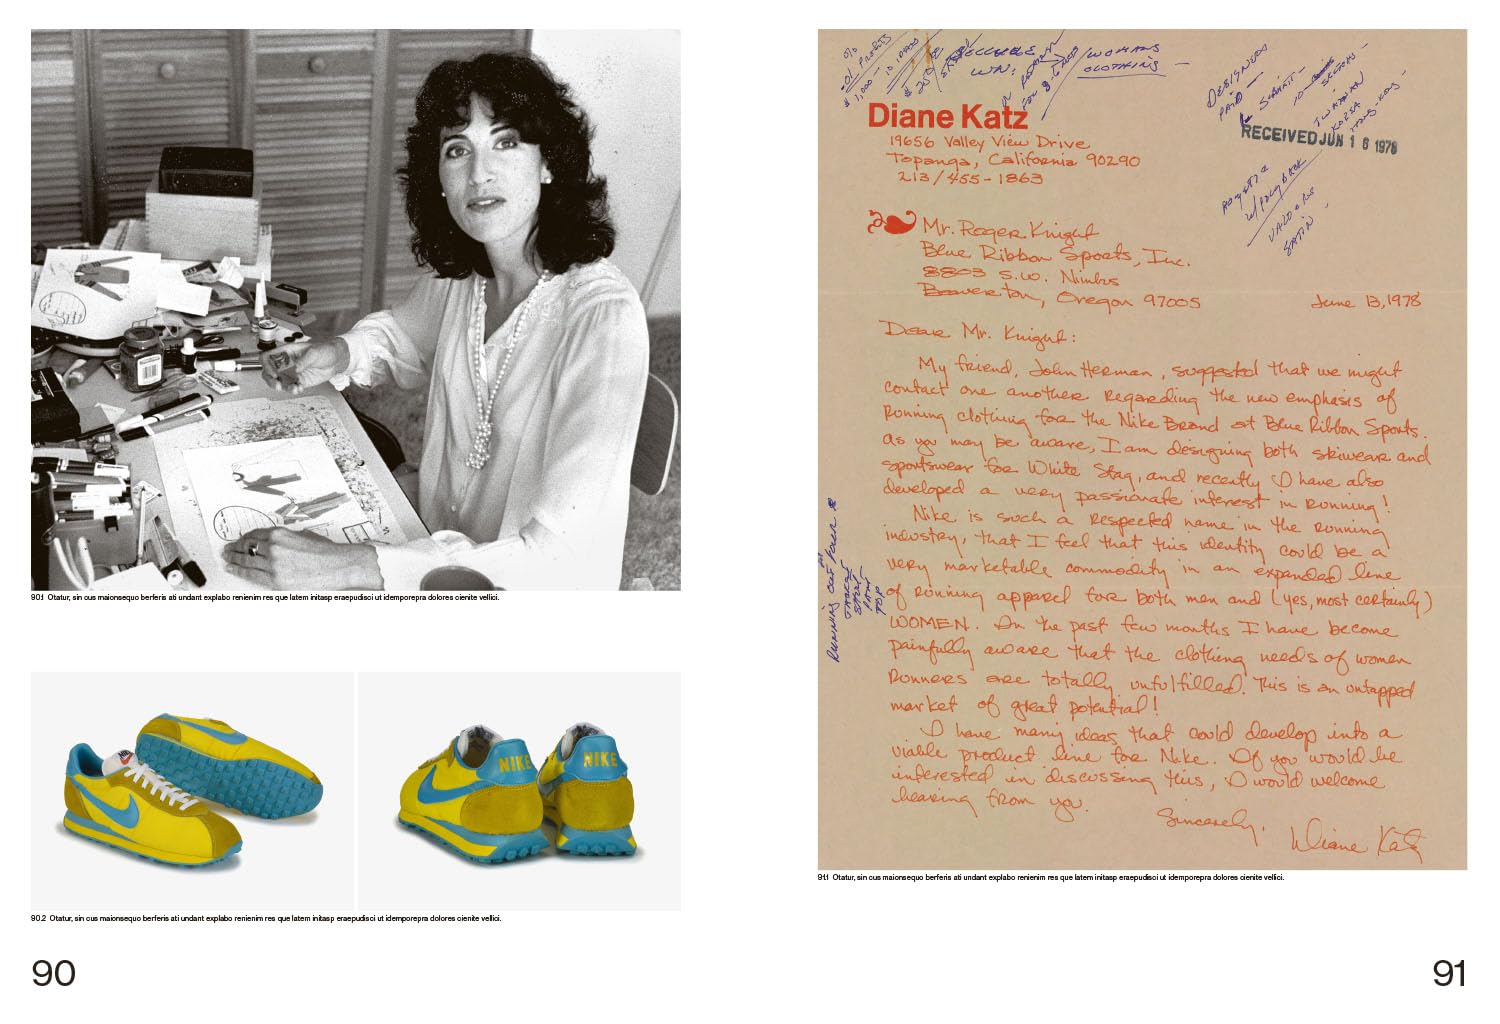 90.1 Otatur, sin cus maionsequo berferis ati undant explabo renienim res que latem initasp eraepudisci ut idemporepra dolores cienite vellici.
NIKE
NIKE
90.2 Otatur, sin cus maionsequo berferis ati undant explabo renienim res que latem initasp eraepudisci ut idemporepra dolores cienite vellici.
90
WOMANS
CLOTHING
DESIGNERS
PAID
SATIN
Diane Katz
19656 Valley View Drive
Topanga, California 90290
213/455-1863
RECEIVED JUN 1 6 1978
Mr. Roger Knight
Blue Ribbon Sports, Inc.
8803 S.W. Nimbus
Beaverton, Oregon 97005
June 13, 1978
Dear Mr. Knight:
My friend, John Herman, suggested that we might
contact one another regarding the new emphasis of
running clothing for the Nike Brand at Blue Ribbon Sports.
As you may be aware, I am designing both skiwear and
sportswear for White Stag, and recently I have also
developed a very passionate interest in running!
Nike is such a respected name in the running
industry, that I feel that this identity could be a
very marketable commodity in an expanded line
of running apparel for both men and (yes, most certainly)
WOMEN. In the past few months I have become
painfully aware that the clothing needs of women
runners are totally unfulfilled. This is an untapped
market of great potential!
I have many ideas that could develop into a
viable product line for Nike. If you would be
interested in discussing this, I would welcome
hearing from you.
Sincerely,
Diane Katz
RUNNING
TOP
91.1 Otatur, sin cus maionsequo berferis ati undant explabo renienim res que latem initasp eraepudisci ut idemporepra dolores cienite vellici.
91